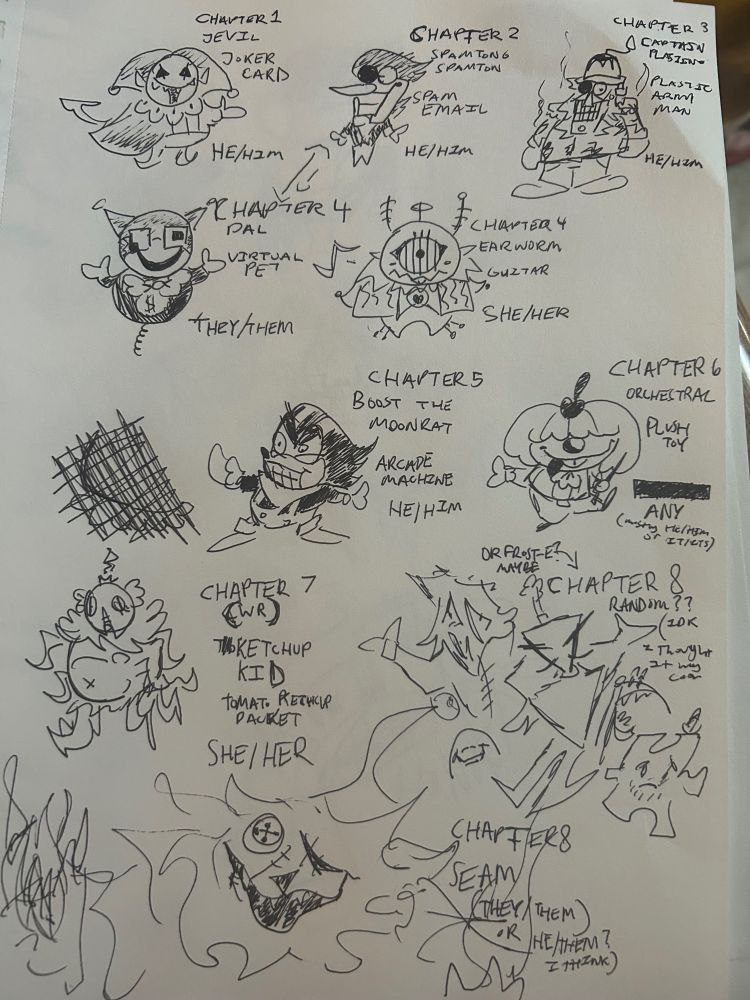 CHAPTER 1
JEVIL
JOKER
CARD
HE/HIM
CHAPTER 2
SPAMTONG
SPAMTON
SPAM
EMAIL
HE/HIM
CHAPTER 3
CAPTAIN
PLASTIC
ARMY
MAN
HE/HIM
CHAPTER 4
PAL
VIRTUAL
PET
THEY/THEM
CHAPTER 4
EARWORM
GUITAR
SHE/HER
CHAPTER 5
BOOST THE
MOONRAT
ARCADE
MACHINE
HE/HIM
CHAPTER 6
ORCHESTRAL
PLUSH
TOY
ANY
(mostly HE/HIM
or IT/ITS)
CHAPTER 7
(WR)
KETCHUP
KID
TOMATO KETCHUP
PACKET
SHE/HER
OR FROST-E?
MAYBE
CHAPTER 8
RANDOM??
(IDK
I Thought
It was
CHAPTER 8
SEAM
(THEY/THEM)
OR
HE/THEM?
I THINK)